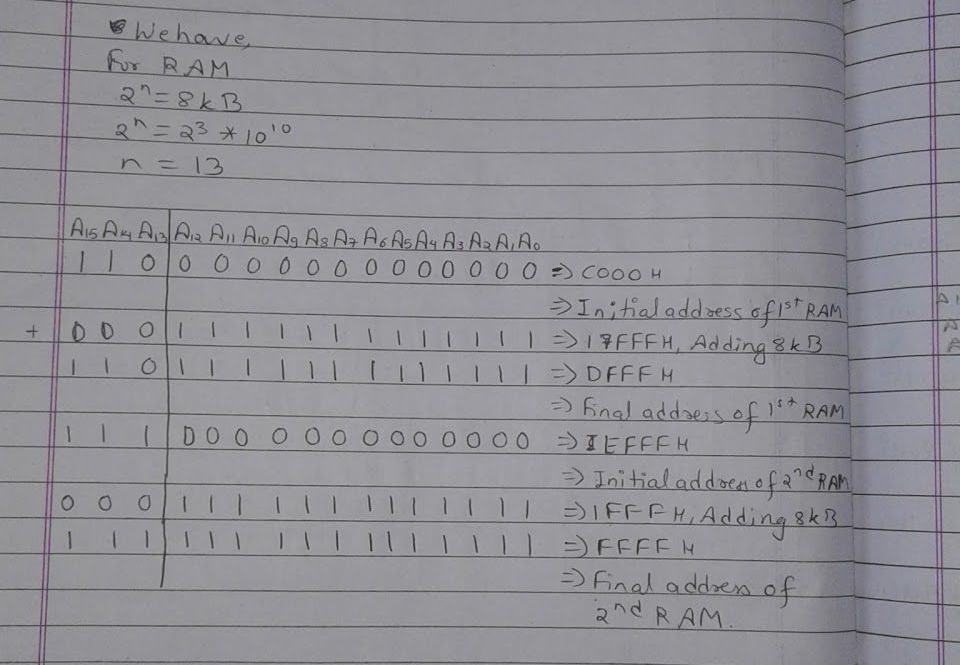 We have,
For RAM
2ⁿ = 8kB
2ⁿ = 2³ * 10¹⁰
n = 13
A15 A14 A13 A12 A11 A10 A9 A8 A7 A6 A5 A4 A3 A2 A1 A0
1 1 0 0 0 0 0 0 0 0 0 0 0 0 0 0 => C000 H
=> Initial address of 1st RAM
+ 0 0 0 1 1 1 1 1 1 1 1 1 1 1 1 1 => 1FFFH, Adding 8kB
1 1 0 1 1 1 1 1 1 1 1 1 1 1 1 1 => DFFF H
=> Final address of 1st RAM
1 1 1 0 0 0 0 0 0 0 0 0 0 0 0 0 => EFFFH
=> Initial address of 2nd RAM
0 0 0 1 1 1 1 1 1 1 1 1 1 1 1 1 => 1FFFH, Adding 8kB
1 1 1 1 1 1 1 1 1 1 1 1 1 1 1 1 => FFFF H
=> Final address of
2nd RAM.